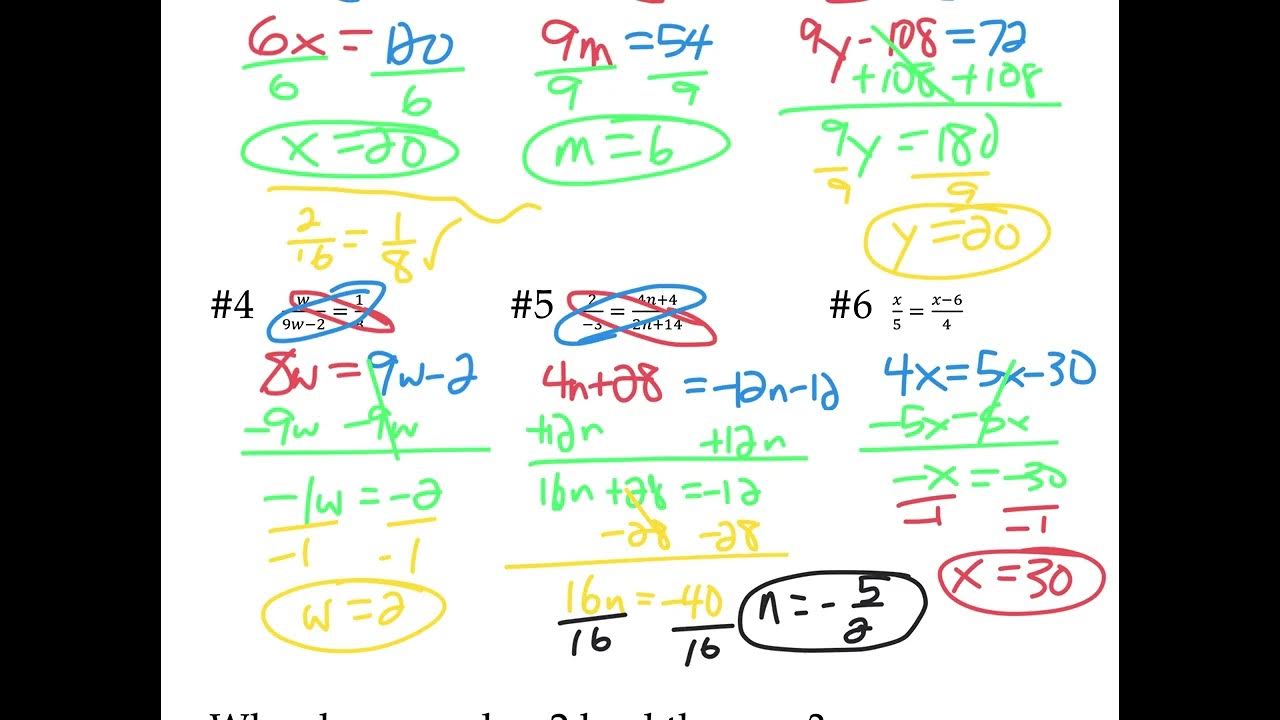 6x = 120
6 6
x = 20
9m = 54
9 9
m = 6
9y - 108 = 72
+108 +108
9y = 180
9 9
y = 20
2/16 = 1/8 ✓
#4 w/9w−2 = 1/8
8w = 9w-2
-9w -9w
-1w = -2
-1 -1
w = 2
#5 2/−3 = 4n+4/2n+14
4n+28 = -12n-12
+12n +12n
16n +28 = -12
-28 -28
16n = -40
16 16
n = - 5/2
#6 x/5 = x−6/4
4x = 5x - 30
-5x -5x
-x = -30
-1 -1
x = 30